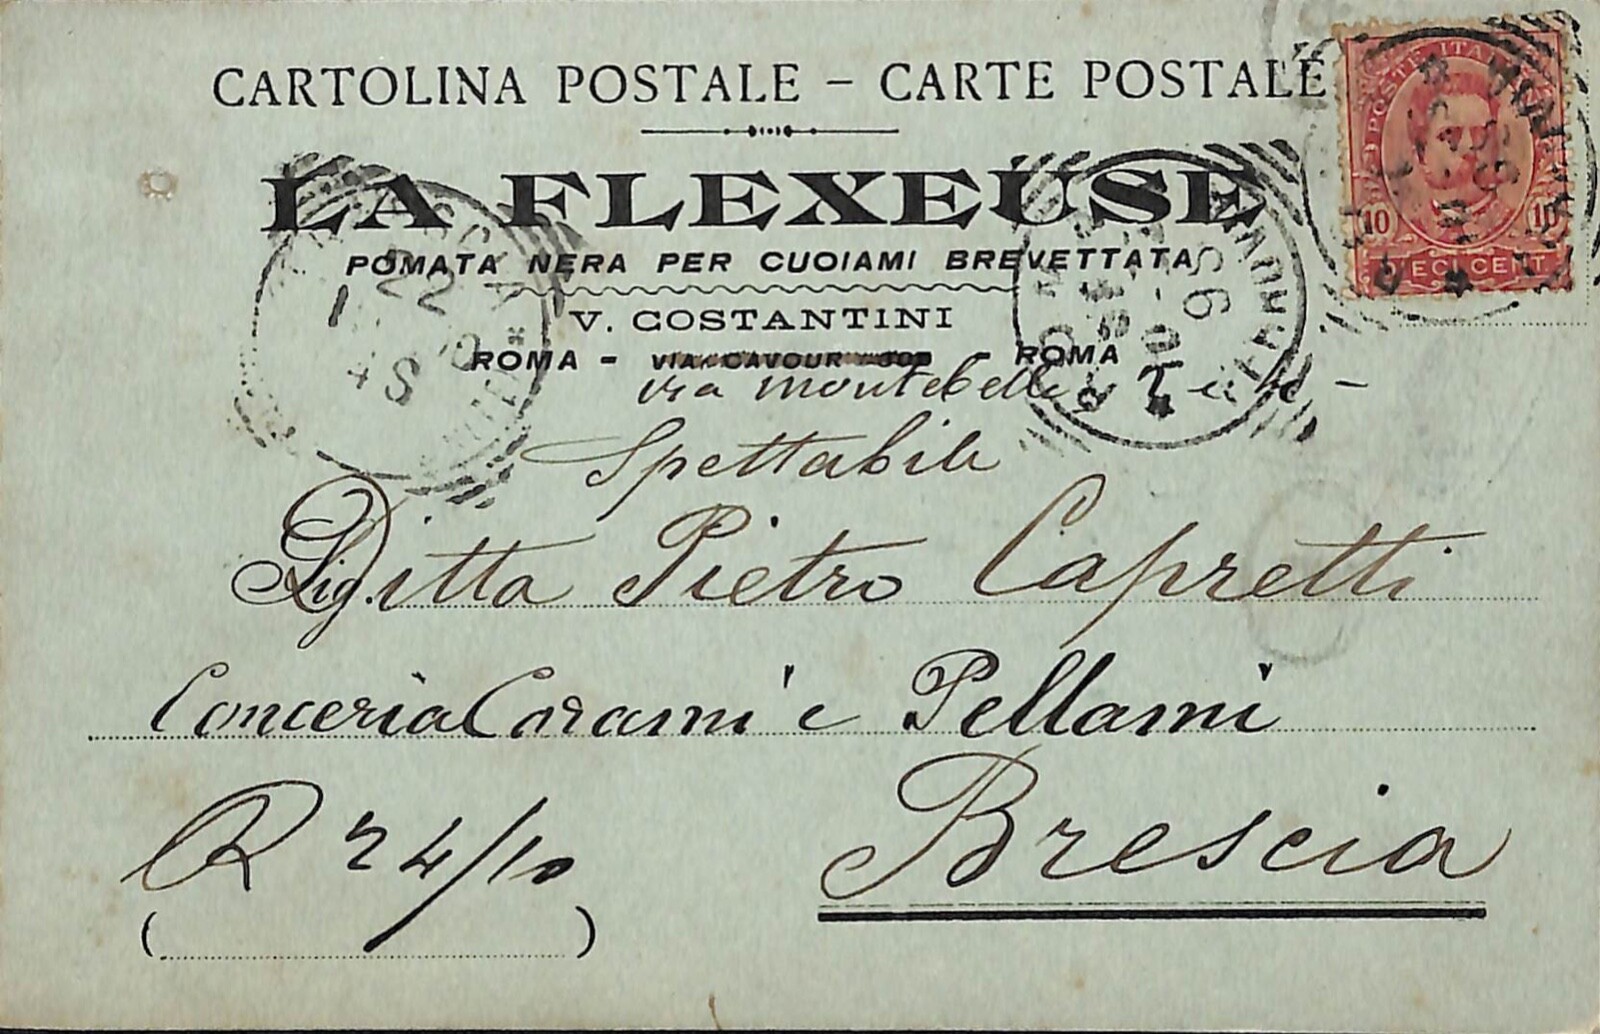 CARTOLINA POSTALE – CARTE POSTALE
POSTE ITAL
10 10
DIECI CENT
LA FLEXEUSE
POMATA NERA PER CUOIAMI BREVETTATA
V. COSTANTINI
ROMA – VIA CAVOUR – ROMA
via montebello
Spettabile
Sig. Ditta Pietro Capretti
Conceria Corami e Pellami
Brescia
R 24/10